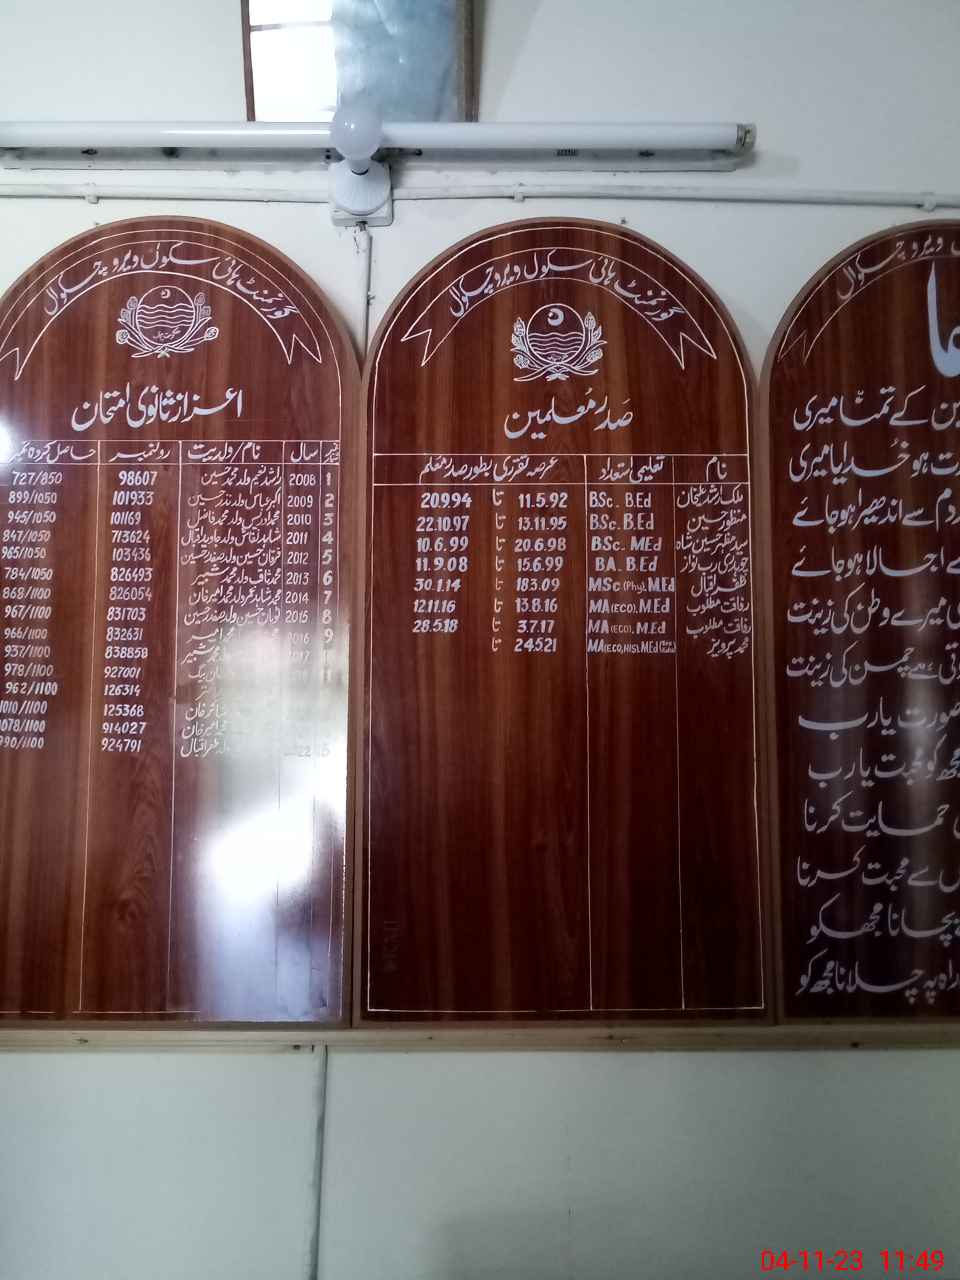 گورنمنٹ ہائی سکول ویرو چکوال
اعزاز ثانوی امتحان
نمبر شمار سال نام/ولدیت رولنمبر حاصل کردہ
1 2008 راشد نعیم ولد محمد حسین 98607 727/850
2 2009 اکبر عباس ولد نذر حسین 101933 899/1050
3 2010 محمد ادریس ولد محمد فاضل 101169 945/1050
4 2011 شاہد نقاش ولد جاوید اقبال 713624 847/1050
5 2012 فرحان حسین ولد صفدر حسین 103436 965/1050
6 2013 محمد ثاقب ولد محمد شبیر 826493 784/1050
7 2014 محمد شاہد عمر ولد محمد امیر خان 826054 868/1100
8 2015 نومان حسین ولد صفدر حسین 831703 967/1100
9 2016 محمد امیر 832631 966/1100
2017 ولد محمد شبیر 838850 937/1100
بیگ 927001 978/1100
126314 962/1100
خان 125368 1010/1100
خان 914027 1078/1100
ولد ظفر اقبال 924791 990/1100
گورنمنٹ ہائی سکول ویرو چکوال
صدر معلمین
نام تعلیمی استعداد عرصہ تقرری بطور صدر معلم
ملک ارشد علی خان BSc. B.Ed 11.5.92 تا 20.9.94
منظور حسین BSc. B.Ed 13.11.95 تا 22.10.97
سید مظہر حسین شاہ BSc. MEd 20.6.98 تا 10.6.99
چوہدری رب نواز BA. B.Ed 15.6.99 تا 11.9.08
ظفر اقبال MSc (Phy). M.Ed 18.3.09 تا 30.1.14
رفاقت مطلوب MA (ECO). M.Ed 13.8.16 تا 12.11.16
رفاقت مطلوب MA (ECO). M.Ed 3.7.17 تا 28.5.18
محمد پرویز MA (ECO, HIS). M.Ed 24.5.21 تا
ویرو چکوال
کے تمنا میری
ہو خدایا میری
دم سے اندھیرا ہو جائے
اجالا ہو جائے
میرے وطن کی زینت
ہے چمن کی زینت
صورت یا رب
کو محبت یا رب
حمایت کرنا
سے محبت کرنا
بچانا مجھ کو
راہ پہ چلانا مجھ کو
04-11-23 11:49